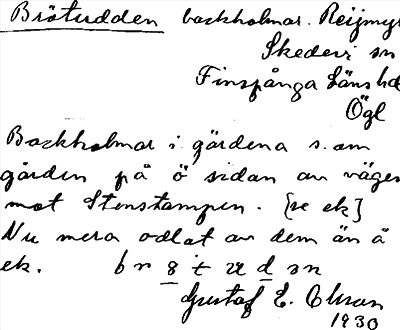 Brötudden backholmar. Reijmyr
Skedevi sn
Finspånga Länshd
Ögl
Backholmar i gärdena s. om
gården på ö sidan av vägen
mot Stenstampen. [se ek]
Nu mera odlat av dem än å
ek. b r ö t u d d n
Gustaf E. Olsson
1930